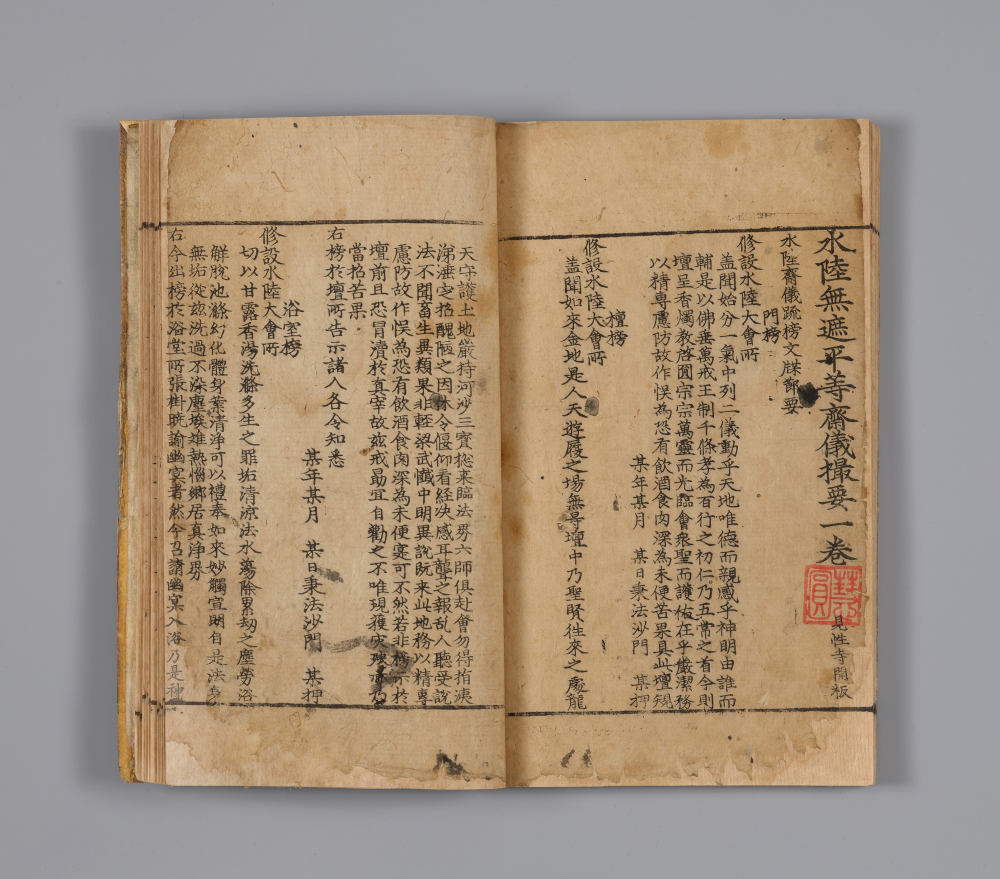 水陸無遮平等齋儀撮要一卷
見性寺開板
水陸齋儀䟽榜文牒節要
門榜
修設水陸大會所
盖聞始分一氣中列二儀動乎天地唯德而親感乎神明由誰而
輔是以佛垂萬戒王制千條孝為百行之初仁乃五常之有今則
壇呈香燭教啓圓宗宗萬靈而光臨會衆聖而護佑在乎嚴潔務
以精專慮防故作悞為恐有飲酒食肉深為未便苦果真此壇規
某年某月 某日秉法沙門 某押
壇榜
修設水陸大會所
盖聞如來金地是人天遊履之場無㝵壇中乃聖賢往來之處龍
天守護土地嚴持河沙三寶捴来臨法界六師俱赴會勿得㨈洟
涕洟定招醜陋之因休令偃仰看経决感耳聾之報乱人聽受說
法不聞畜生異類果非輕梁武懺中明異說既来此地務以精專
慮防故作悞為恐有飲酒食肉深為未便寔可不然若非務於
壇前且恐冒瀆於真宰故玆戒勗宜自勸之不唯現獲灾殃亦乃
當招苦果
右榜於壇所告示諸人各令知悉
某年某月 某日秉法沙門 某押
浴室榜
修設水陸大會所
切以甘露香湯洗滌多生之罪垢清凉法水蕩除累劫之塵勞浴
解脫池滌幻化體身業清淨可以禮奉如來妙觸宣明自是法身
無垢從玆洗過不染塵埃雖熱惱鄉居真淨界
右今出榜於浴堂所張掛晓諭幽冥者然今召請幽冥入浴乃是神